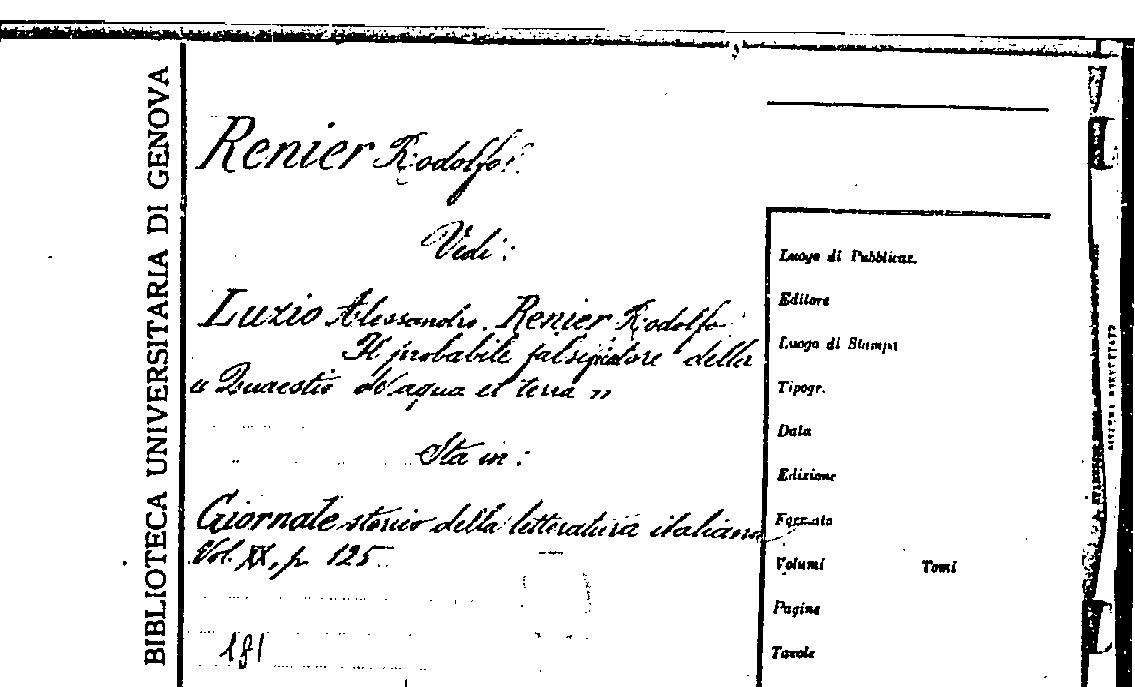 BIBLIOTECA UNIVERSITARIA DI GENOVA
Renier Rodolfo.
Vedi:
Luzio Alessandro. Renier Rodolfo
Il probabile falsificatore della
« Quaestio de aqua et terra »
Sta in:
Giornale storico della letteratura italiana
Vol. XX, p. 125.
181
Luogo di Pubblicaz.
Editore
Luogo di Stampa
Tipogr.
Data
Edizione
Formato
Volumi Tomi
Pagine
Tavole